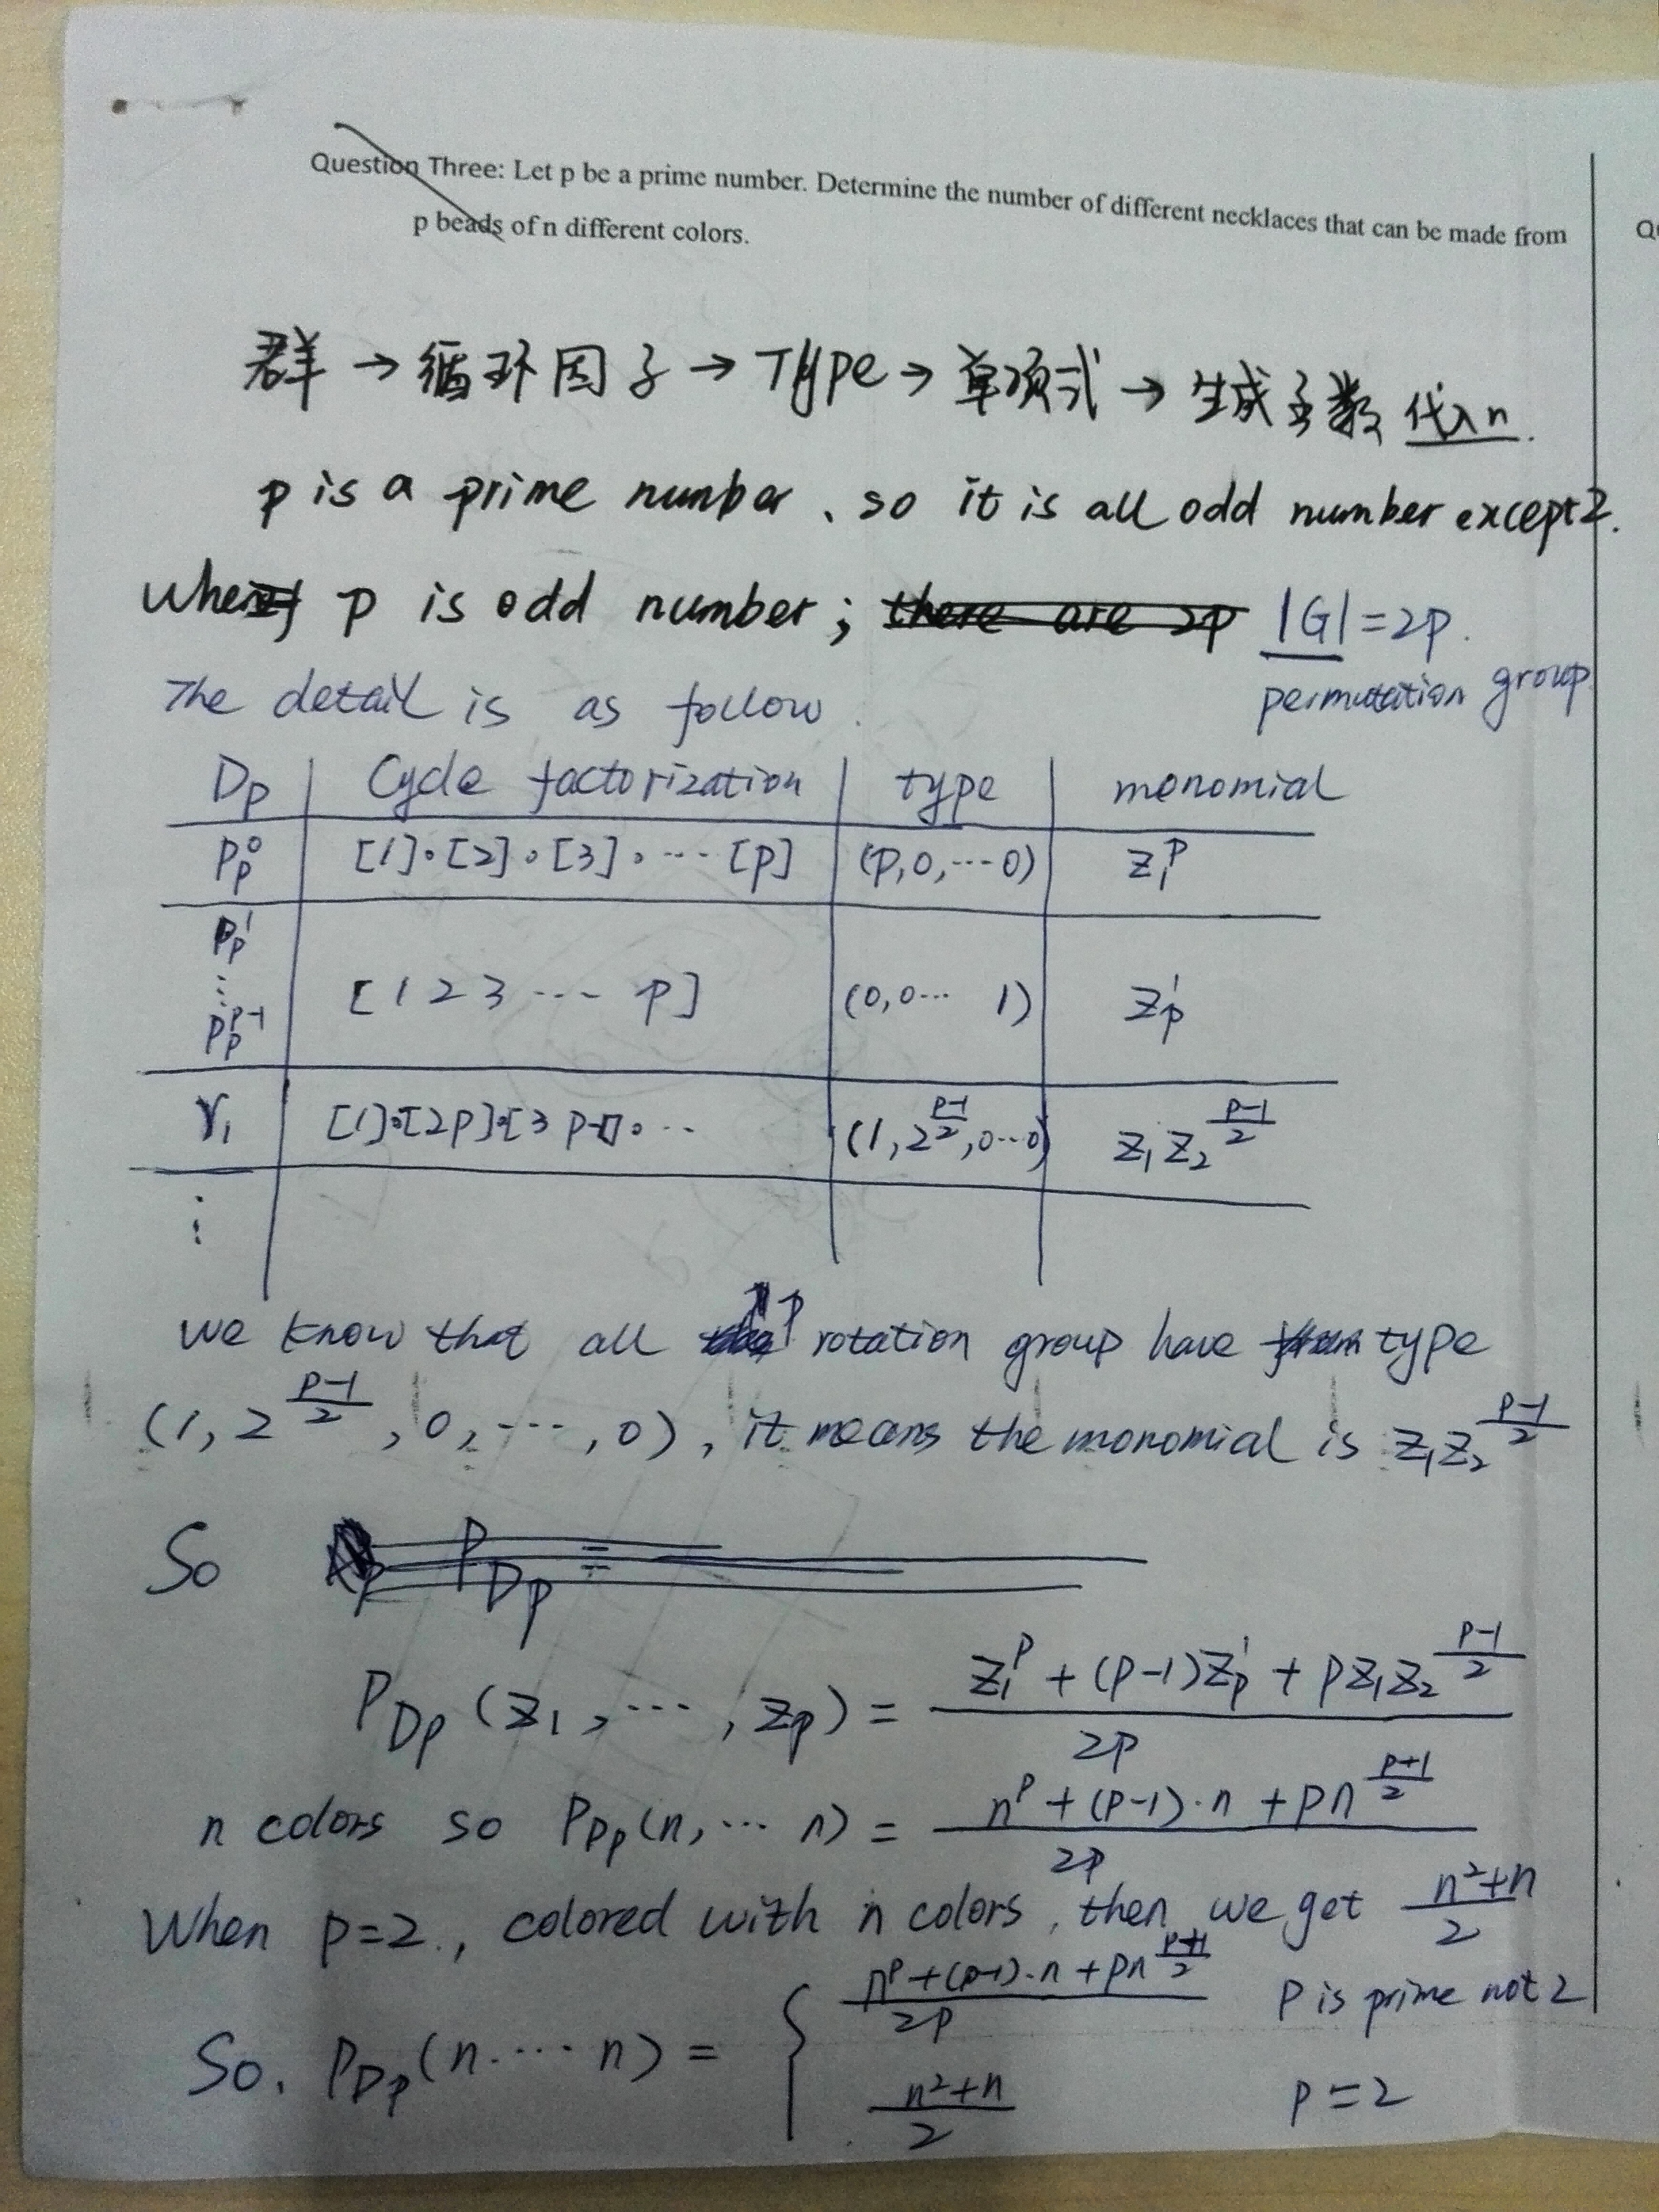 Question Three: Let p be a prime number. Determine the number of different necklaces that can be made from
p beads of n different colors.
群 → 循环因子 → Type → 单项式 → 生成函数 代入n.
p is a prime number, so it is all odd number except 2.
When p is odd number; there are 2p |G| = 2p.
The detail is as follow. permutation group
Dp | Cycle factorization | type | monomial
ρ_p^0 | [1]∘[2]∘[3]∘⋯[p] | (p,0,⋯0) | z_1^p
ρ_p^1
⋮ | [1 2 3 ⋯ p] | (0,0⋯ 1) | z_p^1
ρ_p^{p-1}
γ_1 | [1]∘[2 p]∘[3 p-1]∘⋯ | (1, 2^{\frac{p-1}{2}}, 0⋯0) | z_1 z_2^{\frac{p-1}{2}}
⋮
we know that all p rotation group have type
(1, 2^{\frac{p-1}{2}}, 0, ⋯, 0), it means the monomial is z_1 z_2^{\frac{p-1}{2}}
So P_{Dp} =
P_{Dp}(z_1, ⋯, z_p) = \frac{z_1^p + (p-1)z_p^1 + p z_1 z_2^{\frac{p-1}{2}}}{2p}
n colors so P_{Dp}(n, ⋯ n) = \frac{n^p + (p-1)·n + p n^{\frac{p+1}{2}}}{2p}
When p=2, colored with n colors, then we get \frac{n^2+n}{2}
So. P_{Dp}(n ⋯ n) = { \frac{n^p + (p-1)·n + p n^{\frac{p+1}{2}}}{2p} p is prime not 2
\frac{n^2+n}{2} p = 2